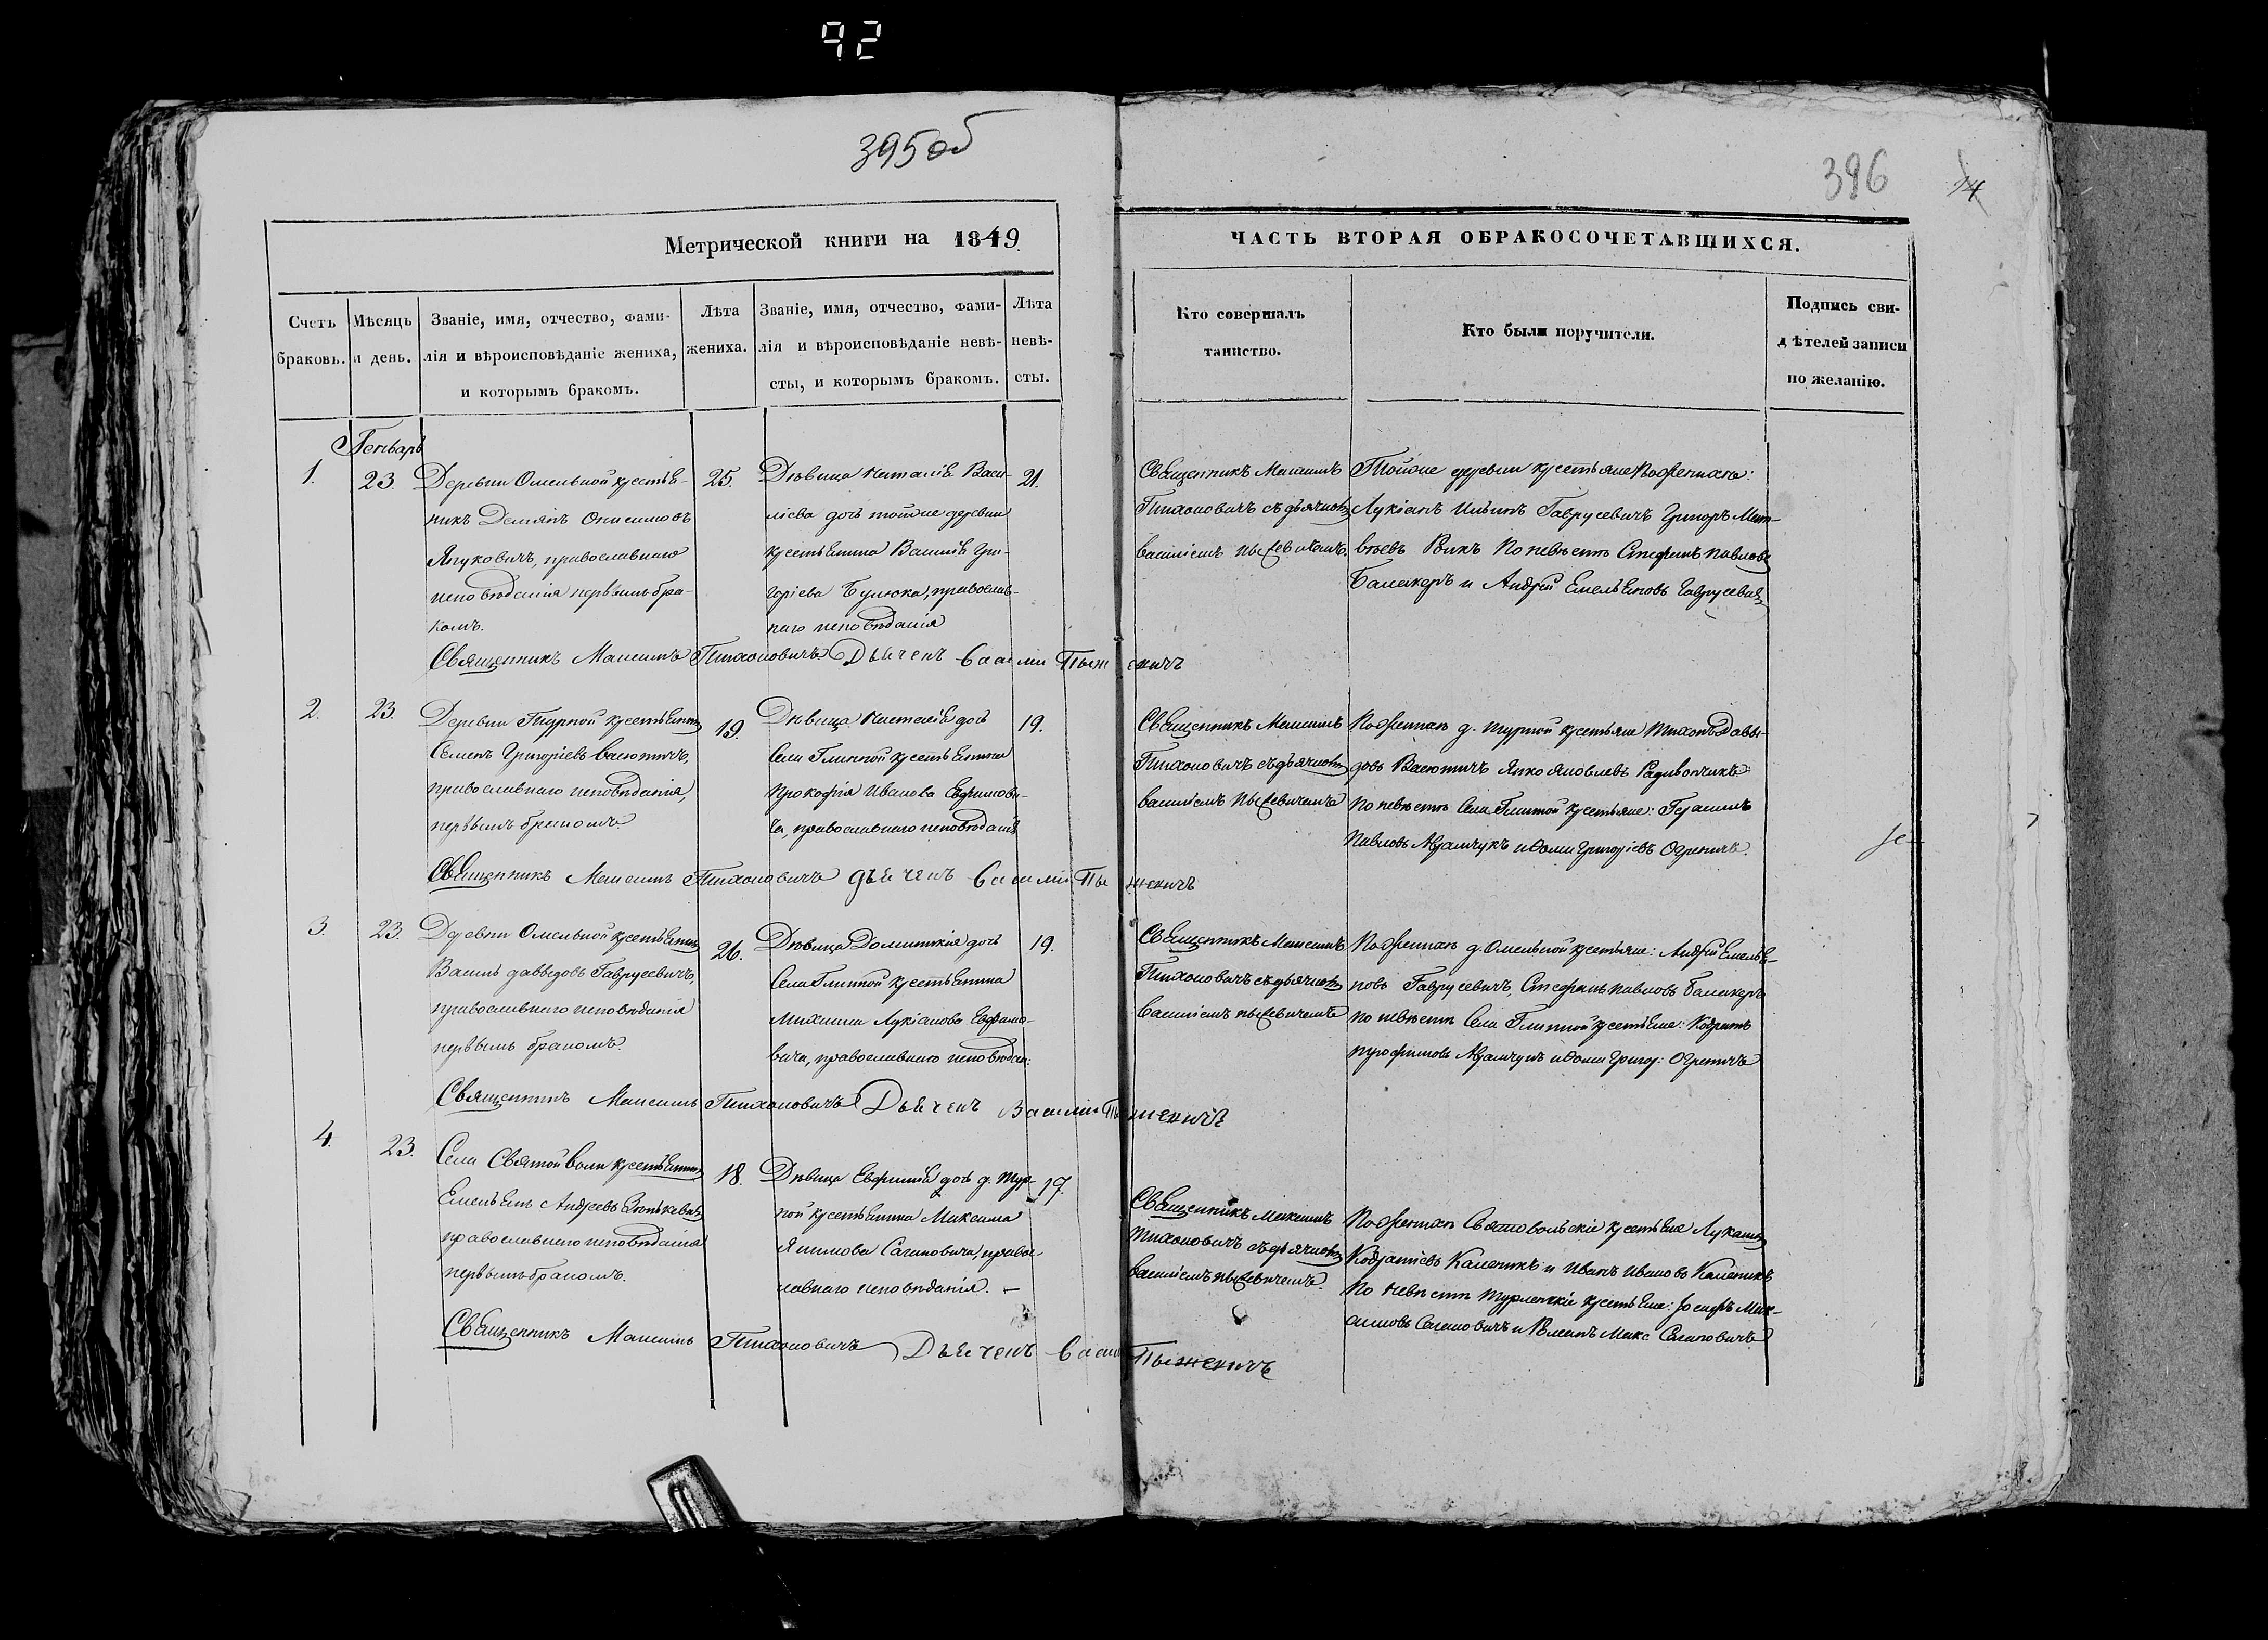 92
395 об
396
14
Метрической книги на 1849.
ЧАСТЬ ВТОРАЯ ОБРАКОСОЧЕТАВШИХСЯ.
Счетъ браковъ.
Мѣсяцъ и день.
Званіе, имя, отчество, фами-
лія и вѣроисповѣданіе жениха,
и которымъ бракомъ.
Лѣта
жениха.
Званіе, имя, отчество, фами-
лія и вѣроисповѣданіе невѣ-
сты, и которымъ бракомъ.
Лѣта
невѣ-
сты.
Кто совершалъ
таинство.
Кто были поручители.
Подпись сви-
дѣтелей записи
по желанію.
Генварь
1.
23.
Деревни Омельной крестья-
никъ Демянъ Онисимовъ
Януковичъ, православнаго
исповѣданія первымъ бра-
комъ.
25.
Дѣвица Наталія Васи-
ліева дочь тойже деревни
крестьянина Василія Гри-
горіева Булюка, православ-
наго исповѣданія
21.
Священникъ Максимъ
Тихоновичъ съ дьячкомъ
Василіемъ
Тойже деревни крестьяне По женихѣ:
Лукіанъ Ильинъ Гаврусевичъ Григоръ Мат-
вѣевъ По невѣстѣ Стефанъ Павловъ
и Андрей Емельяновъ Гаврусевичъ
Священникъ Максимъ Тихоновичъ Дьячекъ Василий
2.
23.
Деревни Турной крестьянинъ
Семенъ Григоріевъ Васютичъ,
православнаго исповѣданія,
первымъ бракомъ.
19.
Дѣвица Настасія дочь
Села Глинной крестьянина
Прокофія Иванова Евфимови-
ча, православнаго исповѣданія
19.
Священникъ Максимъ
Тихоновичъ съ дьячкомъ
Василіемъ
По женихѣ д. Турной крестьяне Тихонъ Давы-
довъ Васютичъ Янко Яковлевъ Радивончикъ
по невѣстѣ Села Глинной крестьяне: Герасимъ
Павловъ Адамчукъ и Фома Григоріевъ
Священникъ Максимъ Тихоновичъ дьячекъ Василій
3.
23.
Деревни Омельной крестьянинъ
Василь Давыдовъ Гаврусевичъ,
православнаго исповѣданія
первымъ бракомъ.
26.
Дѣвица Домникія дочь
Села Глинной крестьянина
Михаила Лукіанова Евфимо-
вича, православнаго исповѣдан:
19.
Священникъ Максимъ
Тихоновичъ съ дьячкомъ
Василіемъ
По женихѣ д. Омельной крестьяне: Андрей Емелья-
новъ Гаврусевичъ, Стефанъ Павловъ
по невѣстѣ Села Глинной крестьяне: Кодратъ
Трофимовъ Адамчукъ и Фома Григор:
Священникъ Максимъ Тихоновичъ Дьячекъ Василій
4.
23.
Села Святой Воли крестьянинъ
Емельянъ Андреевъ
православнаго исповѣданія
первымъ бракомъ.
18.
Дѣвица Евфимія дочь д. Тур-
ной крестьянина Максима
Якимова Сагановича, право-
славнаго исповѣданія. –
17.
Священникъ Максимъ
Тихоновичъ съ дьячкомъ
Василіемъ
По женихѣ Святовольскіе крестьяне Лукашъ
Кодратіевъ Каленикъ и Иванъ Ивановъ Каленикъ
По невѣстѣ Турлянскіе крестьяне: Іосифъ Мак-
симовъ Сагановичъ и Макс Сагановичъ
Священникъ Максимъ Тихоновичъ Дьячекъ